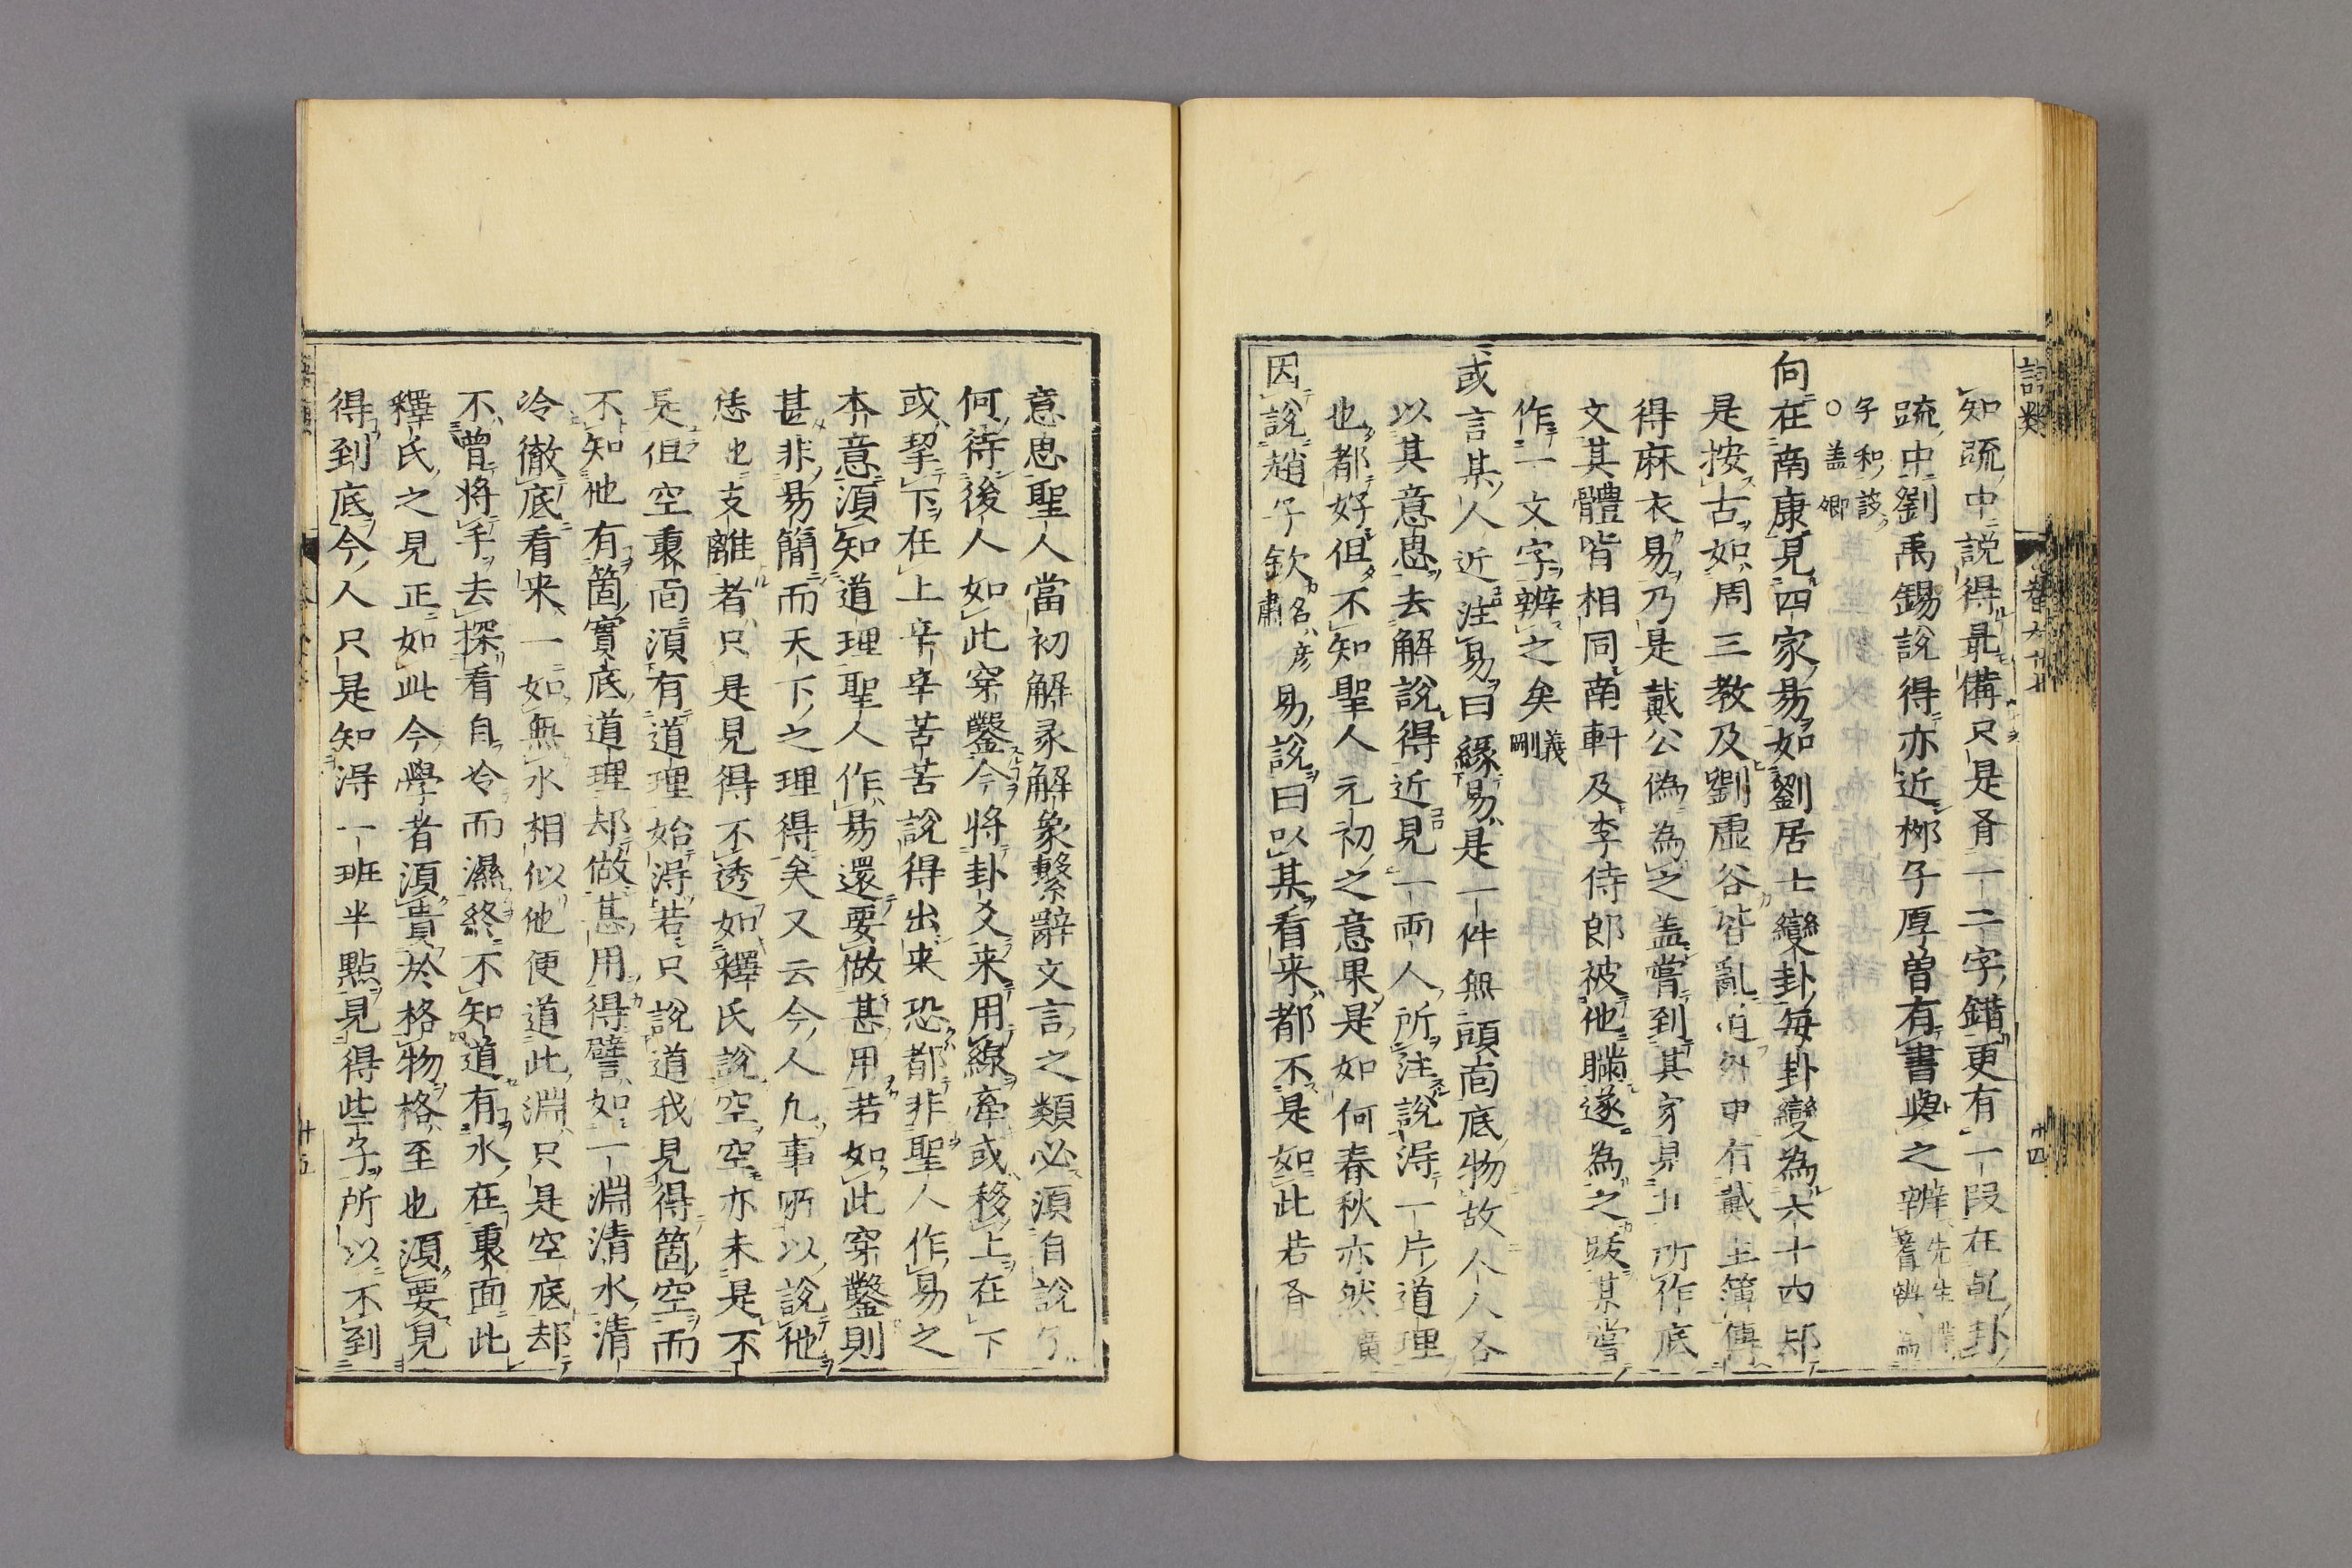 語類 卷六十七 十四
知䟽中説得最備只是有一二字錯更有一段在乹卦
䟽中劉禹錫説得亦近栁子厚曽有書與之辨先生
子和該
○盖卿
向在南康見四家易如劉居士變卦每卦變為六十四却
是按古如周三教及劉虚谷皆亂道外更有戴主簿傳
得麻衣易乃是戴公偽為之盖嘗到其家見其所作底
文其體皆相同南軒及李侍郎被他瞞遂為之跋某嘗
作一文字辨之矣義剛
或言某人近注易曰縁易是一件無頭面底物故人人各
以其意思去解説得近見一両人所注説得一片道理
也都好但不知聖人元初之意果是如何春秋亦然廣
因説趙子欽名彦肅易説曰以某看来都不是如此若有
意思聖人當初解彖解象繋辭文言之類必湏自説了
何待後人如此穿鑿今将卦爻来用線牽或移上在下
或挈下在上辛辛苦苦説得出来恐都非聖人作易之
本意湏知道理聖人作易還要做甚用若如此穿鑿則
甚非易簡而天下之理得矣又云今人凢事所以説他
恁也支離者只是見得不透如釋氏説空空亦未是不
是但空裏面湏有道理始得若只説道我見得箇空而
不知他有箇實底道理却做甚用得譬如一淵清水清
冷徹底看来一如無水相似他便道此淵只是空底却
不曽将手去探看自冷而濕終不知道有水在裏面此
釋氏之見正如此今學者湏貴於格物格至也湏要見
得到底今人只是知得一班半點見得些子所以不到
十五